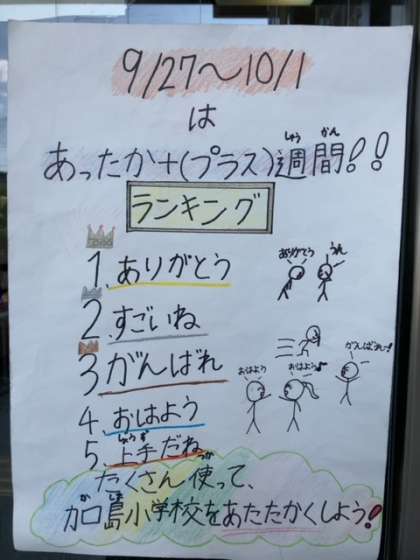 9/27～10/1
は
あったか＋(プラス)週間!!
しゅう かん
ランキング
1.ありがとう
2.すごいね
3.がんばれ
4.おはよう
5.上手だね
じょうず
ありがとう
うん
がんばれー!
おはよう
おはよう♪
たくさん使って、
つか
加口島小学校をあたたかくしよう!